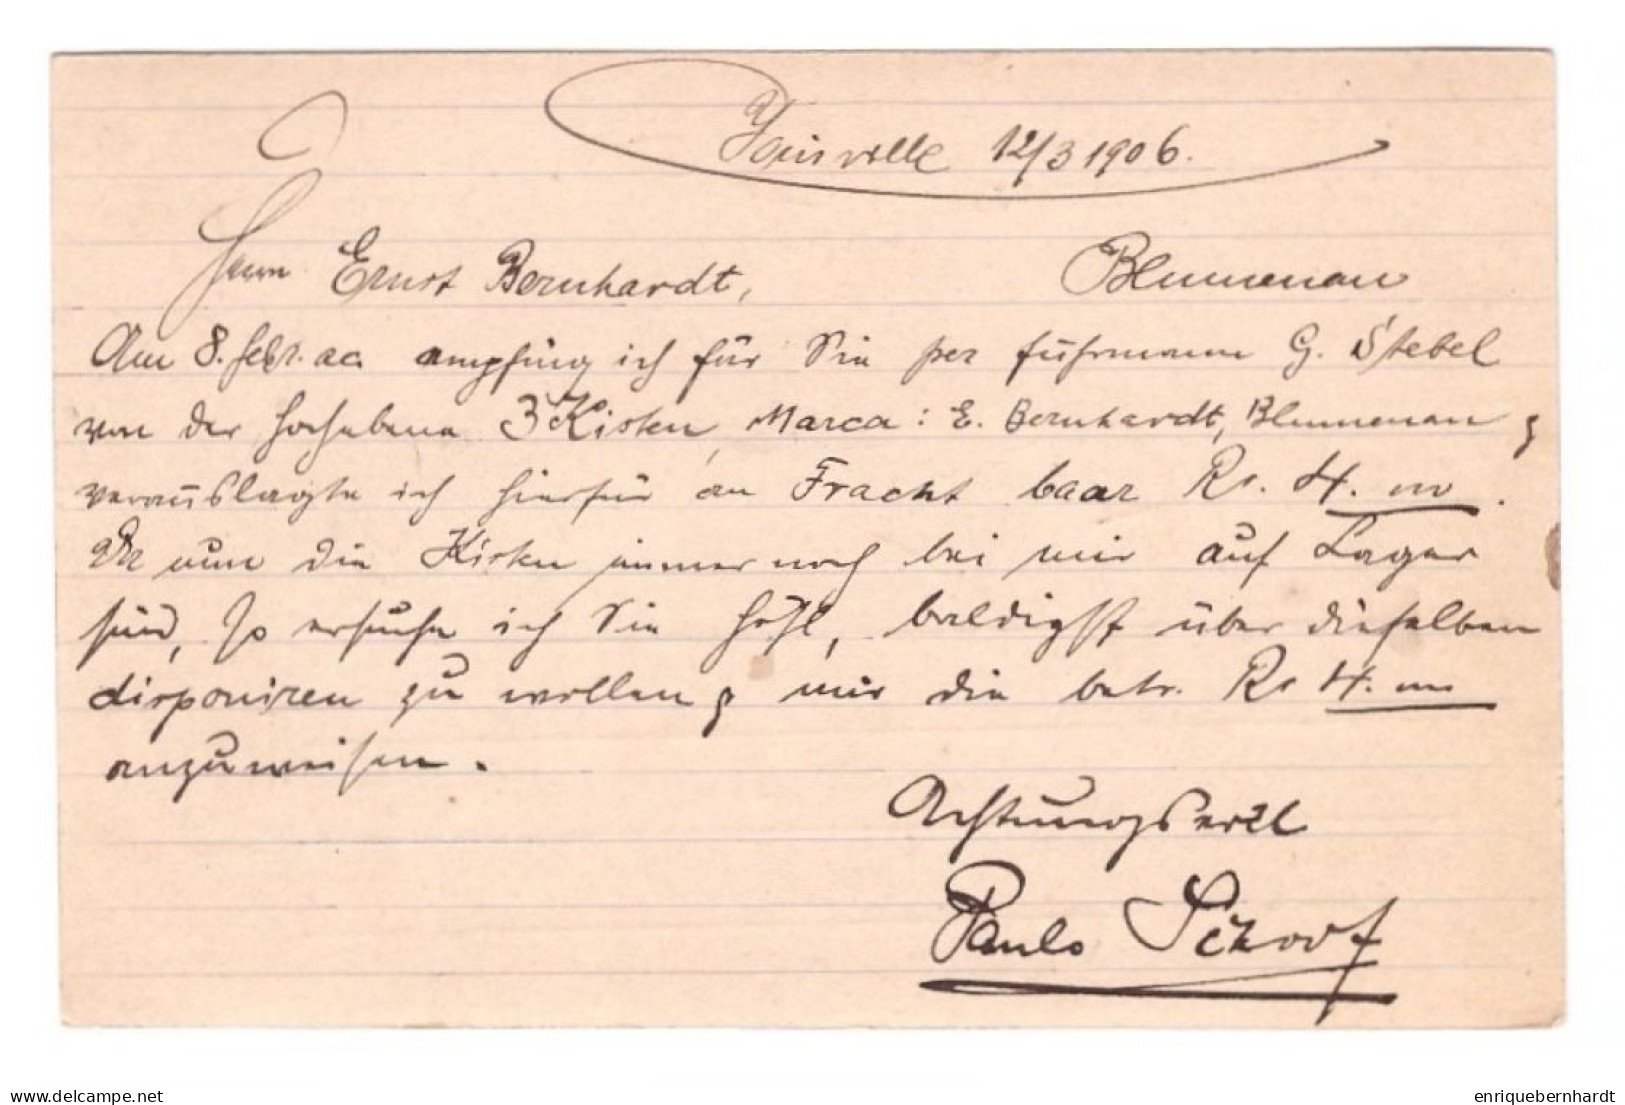 Joinville 12/3 1906.
Herrn Ernst Bernhardt, Blumenau
Am 8. Febr. ac. empfing ich für Sie per Fuhrmann G. Stebel
von der 3 Kisten, Marca: E. Bernhardt, Blumenau &
verauslagte ich hierfür an Fracht baar Rs. 4.
Da nun die Kisten immer noch bei mir auf Lager
sind, so ersuche ich Sie höfl, baldigst über dieselben
disponiren zu wollen & mir die betr. Rs 4.
anzuweisen.
Achtungsvoll
Paulo
delcampe.net
enriquebernhardt